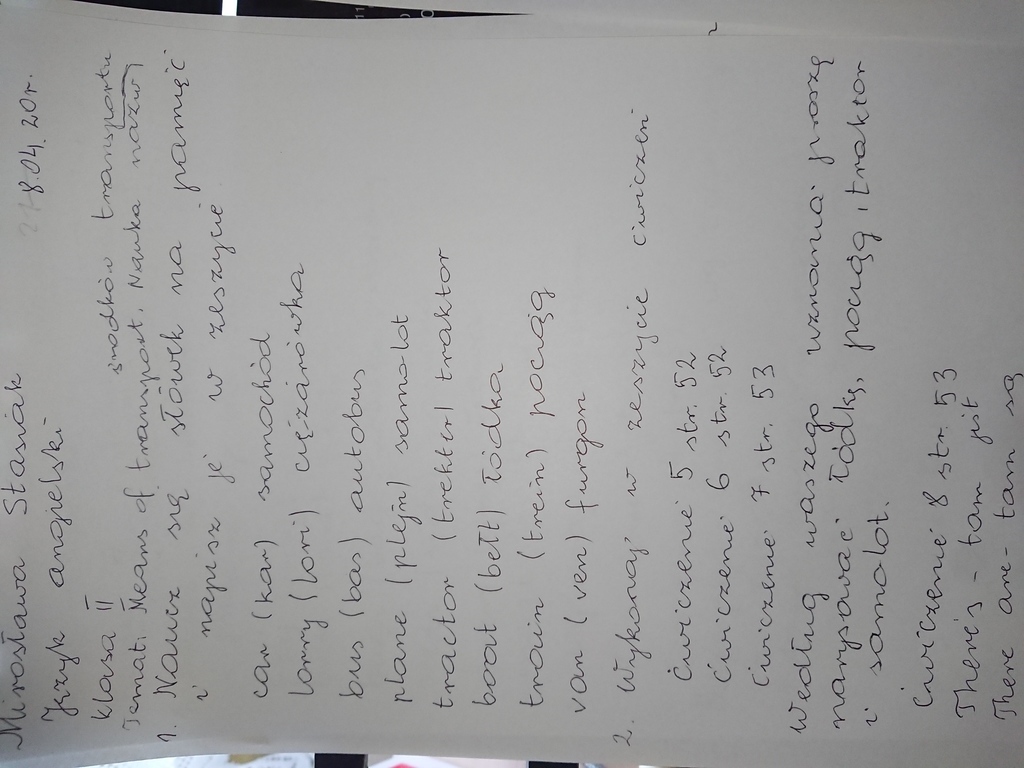 Mirosława Stasiak
Język angielski 28.04.20r.
Klasa II
środków transportu
Temat: Means of transport. Nauka nazw
1. Naucz się słówek na pamięć
i napisz je w zeszycie
car (kar) samochód
lorry (lori) ciężarówka
bus (bas) autobus
plane (plejn) samolot
tractor (trekter) traktor
boat (bełt) łódka
train (trein) pociąg
van (ven) furgon
2. Wykonaj w zeszycie ćwiczeń
Ćwiczenie 5 str. 52
Ćwiczenie 6 str. 52
Ćwiczenie 7 str. 53
Według waszego uznania proszę
narysować łódkę, pociąg, traktor
i samolot.
Ćwiczenie 8 str. 53
There's - tam jest
There are - tam są